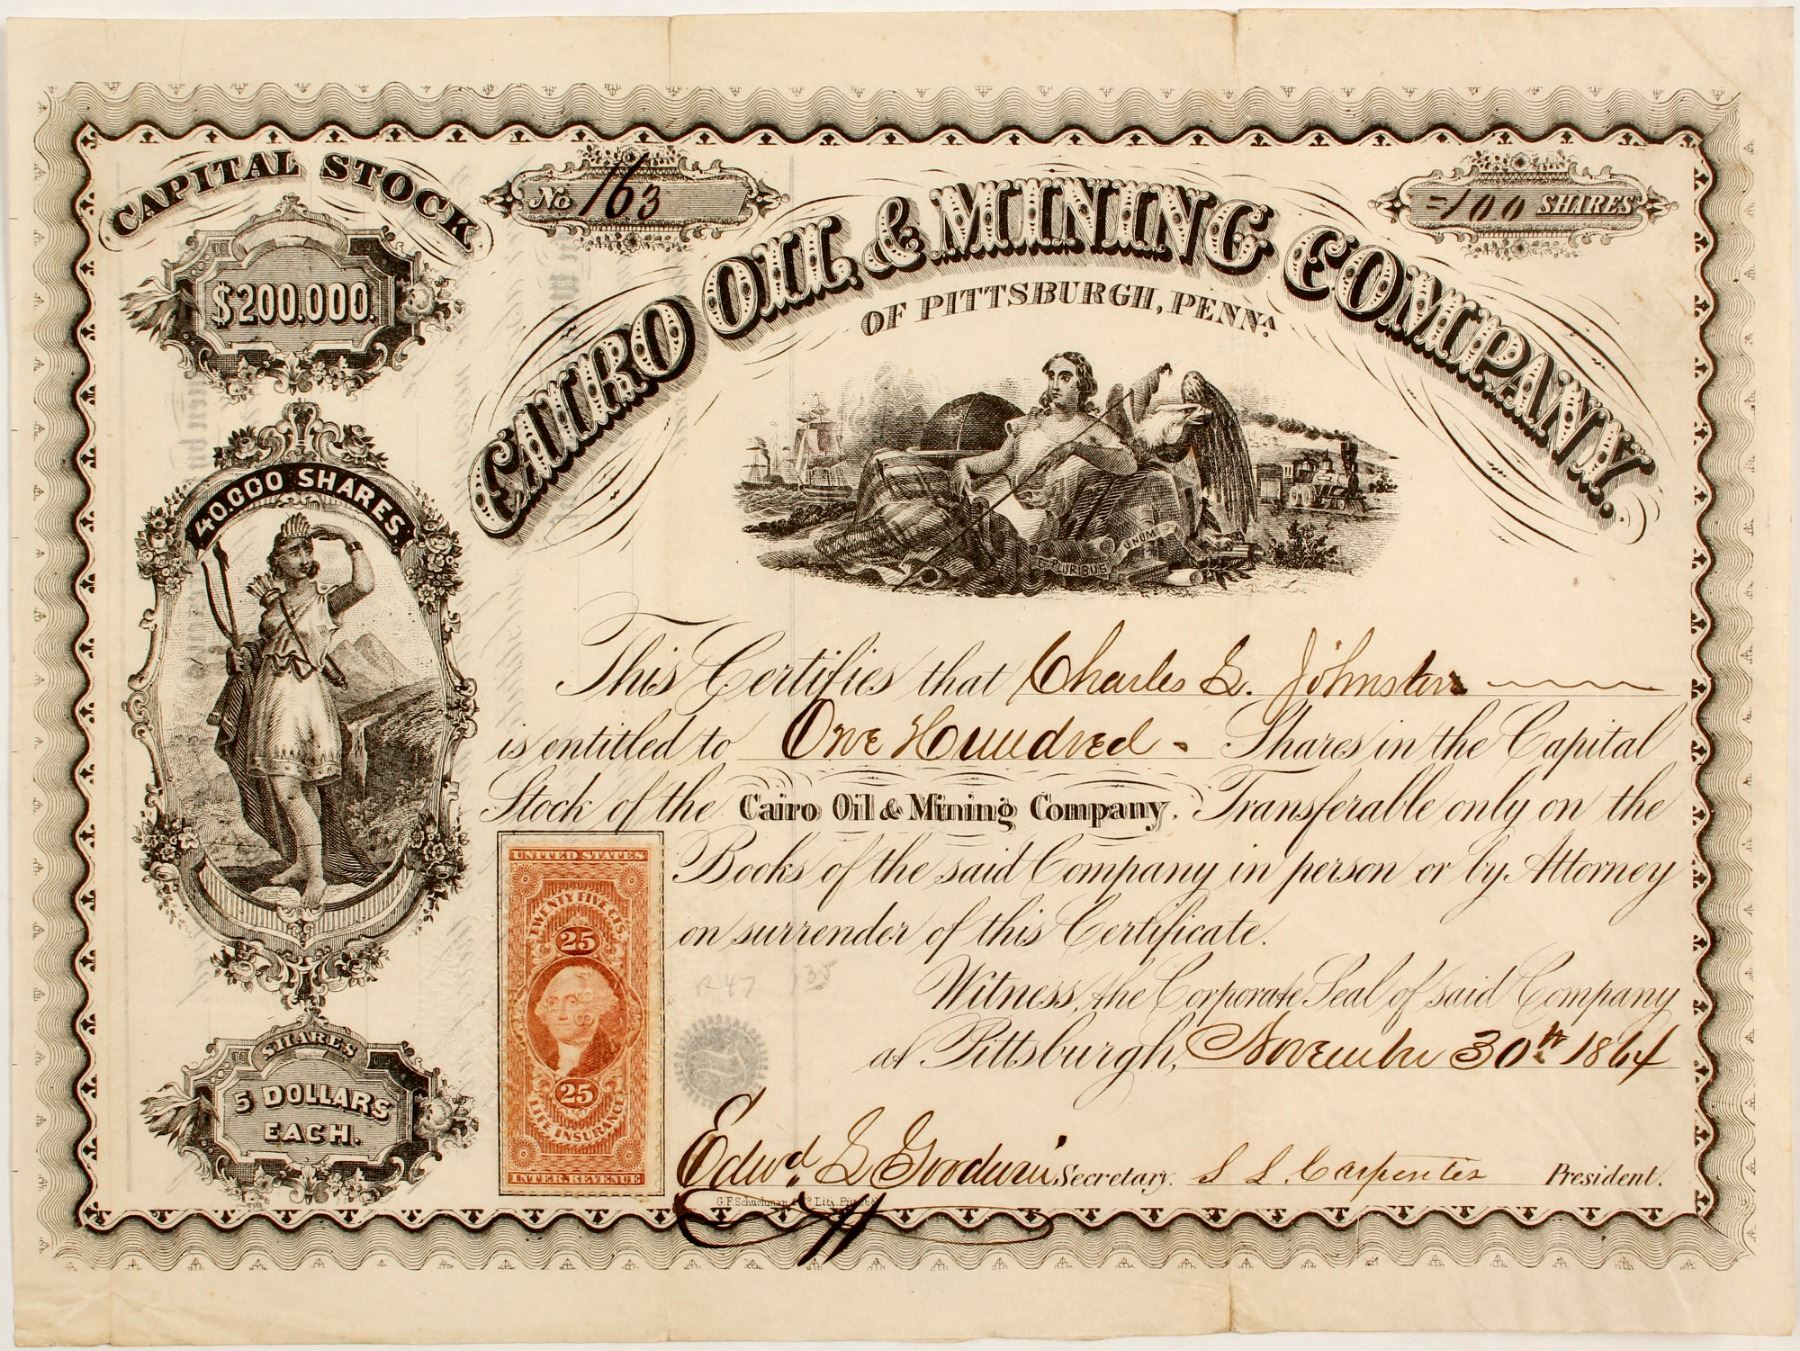 CAPITAL STOCK
$200,000.
No 163
=100 SHARES
CAIRO OIL & MINING COMPANY.
OF PITTSBURGH, PENNA.
40,000 SHARES
UNUM
PLURIBUS
This Certifies that Charles L. Johnston
is entitled to One Hundred Shares in the Capital
Stock of the Cairo Oil & Mining Company. Transferable only on the
Books of the said Company in person or by Attorney
on surrender of this Certificate.
Witness, the Corporate Seal of said Company
at Pittsburgh, November 30th 1864
SHARES
5 DOLLARS
EACH.
UNITED STATES
TWENTY FIVE CTS.
25
25
LIFE INSURANCE
INTER. REVENUE
R47 135
Edwd. G Goodwin Secretary. S L Carpenter President.
G.F. Schuchman & Co Lith. Pitts